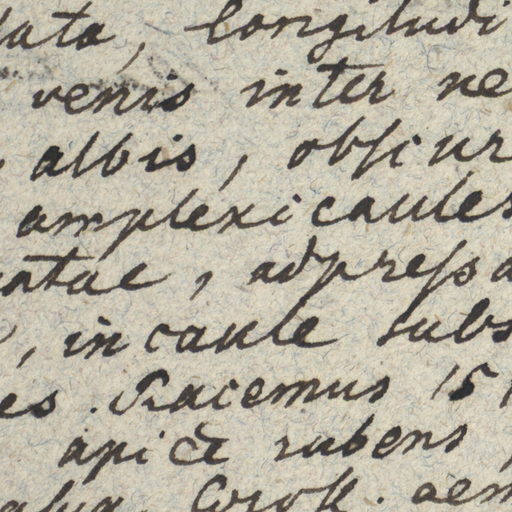 lata, longitudi
venis inter ne
albis, obscur
amplexicaules
ntae, adpressa
, in caule subs
es. Racemus 15
apice rubens,
Coroll. aem